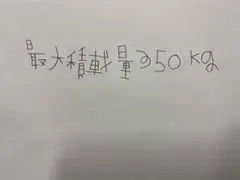 最大積載量350kg